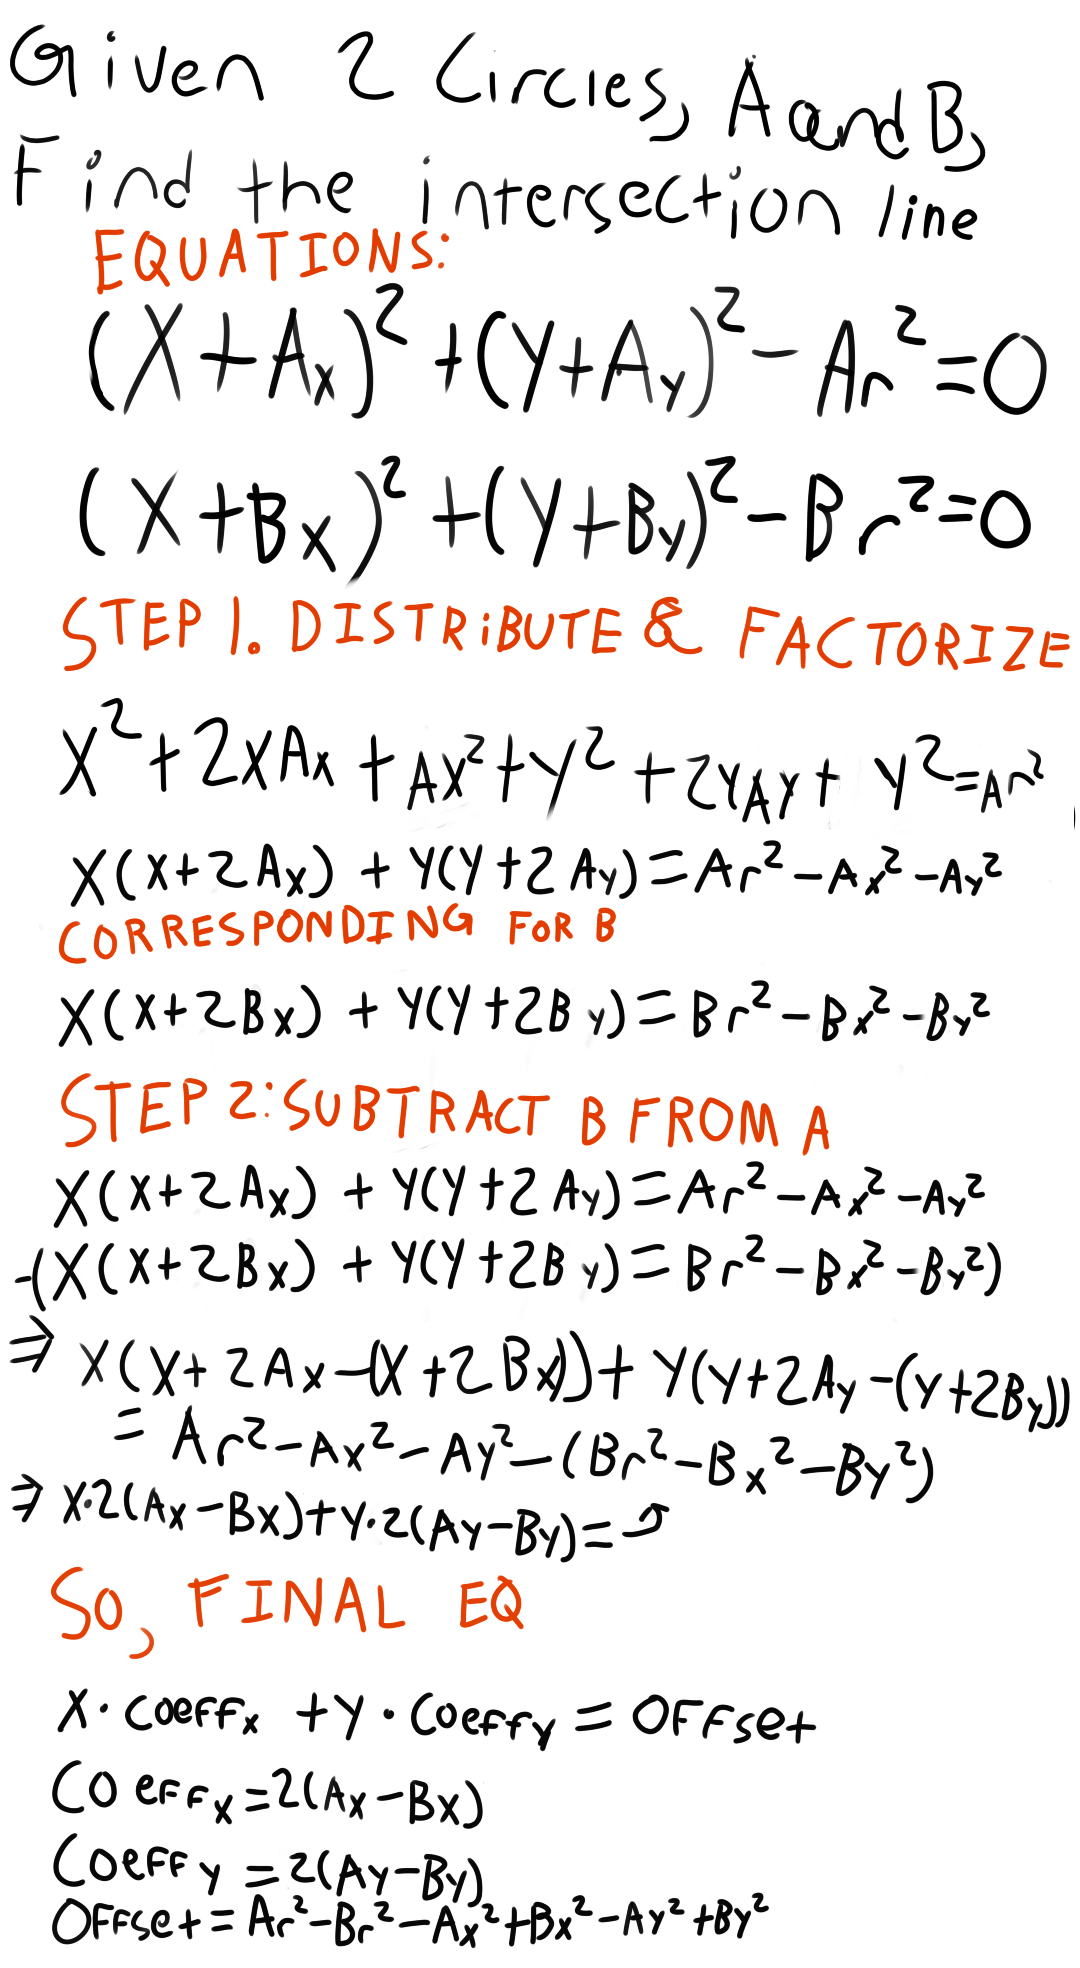 Given 2 Circles, A and B,
Find the intersection line
EQUATIONS:
(X+Ax)²+(Y+Ay)²-Ar²=0
(X+Bx)²+(Y+By)²-Br²=0
STEP 1. DISTRiBUTE & FACTORIZE
X²+2XAx+AX²+Y²+2YAY+Y²=Ar²
X(X+2Ax)+Y(Y+2Ay)=Ar²-Ax²-Ay²
CORRESPONDING FoR B
X(X+2Bx)+Y(Y+2By)=Br²-Bx²-By²
STEP 2:SUBTRACT B FROM A
X(X+2Ax)+Y(Y+2Ay)=Ar²-Ax²-Ay²
-(X(X+2Bx)+Y(Y+2By)=Br²-Bx²-By²)
⇒ X(X+2Ax-(X+2Bx))+Y(Y+2Ay-(Y+2By))
=Ar²-Ax²-Ay²-(Br²-Bx²-By²)
⇒ X·2(Ax-Bx)+Y·2(Ay-By)=⤴
SO, FINAL EQ
X·Coeffx+Y·Coeffy=OFFset
Coeffx=2(Ax-Bx)
Coeffy=2(Ay-By)
OFFset=Ar²-Br²-Ax²+Bx²-Ay²+By²